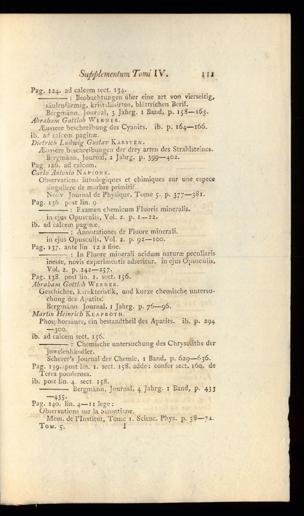 Supplementum Tomi IV. 111
Pag. 124. ad calcem sect. 134.
——— : Beobachtungen über eine art von vierseitig,
säulenförmig, kristallisirten, blättrichen Beril.
Bergmänn. Journal, 3 Jahrg. 1 Band, p. 158—165.
Abraham Gottlob WERNER.
Æussere beschreibung des Cyanits. ib. p. 164—166.
ib. ad calcem paginæ.
Dietrich Ludwig Gustav KARSTEN.
Æussere beschreibungen der drey arten des Strahlsteines.
Bergmänn. Journal, 2 Jahrg. p. 399—402.
Pag. 126. ad calcem.
Carlo Antonio NAPIONE.
Observations lithologiques et chimiques sur une espece
singuliere de marbre primitif.
Nouv. Journal de Physique, Tome 5. p. 377—381.
Pag. 136. post lin. 9.
——— : Examen chemicum Fluoris mineralis.
in ejus Opusculis, Vol. 2. p. 1—22.
ib. ad calcem paginæ.
——— : Annotationes de Fluore minerali.
in ejus Opusculis, Vol. 2. p. 92—100.
Pag. 137. ante lin 12 a fine.
——— : In Fluore minerali acidum naturæ peculiaris
inesse, novis experimentis adseritur. in ejus Opusculis,
Vol. 2. p. 242—257.
Pag. 138. post lin. 1. sect. 156.
Abraham Gottlob WERNER.
Geschichte, karakteristik, und kurze chemische untersu-
chung des Apatits.
Bergmänn. Journal, 1 Jahrg. p. 76—96.
Martin Heinrich KLAPROTH.
Phosphorsäure, ein bestandtheil des Apatits. ib. p. 294
—300.
ib. ad calcem sect. 156.
——— : Chemische untersuchung des Chrysoliths der
Juwelenhändler.
Scherer's Journal der Chemie, 1 Band, p. 629—636.
Pag. 139. post lin. 1. sect. 158. adde: confer sect. 160. de
Terra ponderosa.
ib. post lin. 4. sect. 158.
——— Bergmänn. Journal, 4 Jahrg. 1 Band, p. 433
—435.
Pag. 140. lin. 4—11 lege:
Observations sur la
Mem. de l'Institut, Tome 1. Scienc. Phys. p. 58—74.
TOM. 5. I